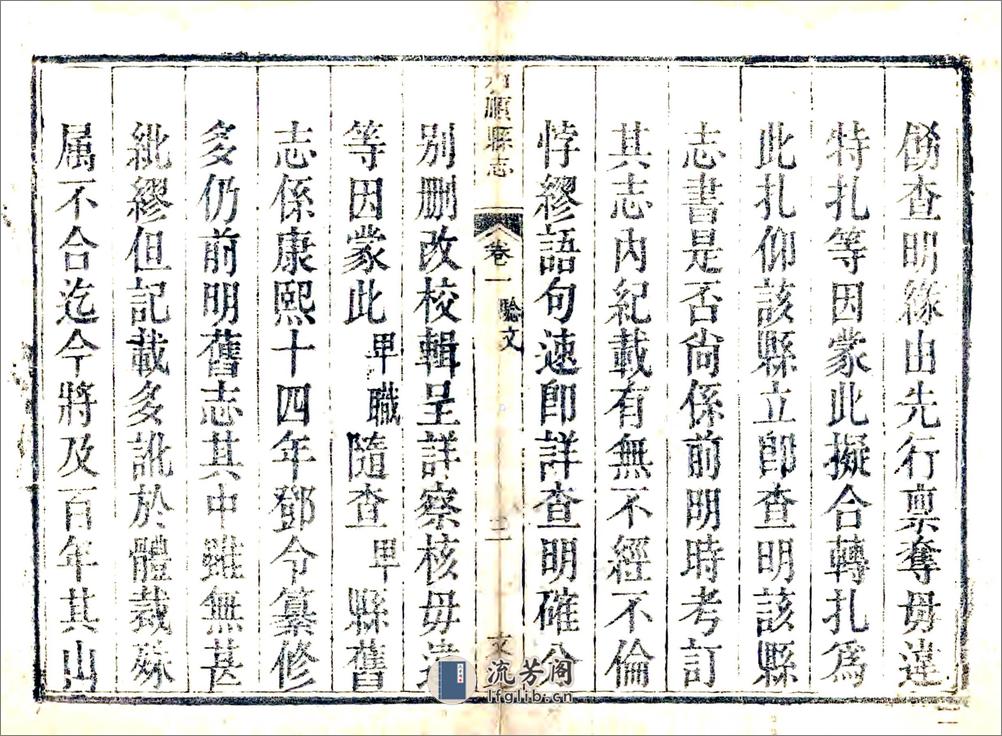 飭查明緣由先行禀奪毋違
特扎等因蒙此擬合轉扎為
此扎仰該縣立即查明該縣
志書是否尚係前明時考訂
其志內紀載有無不經不倫
悖繆語句速即詳查明確分
順縣志 卷一 文 三 文
別刪改校輯呈詳察核毋違
等因蒙此卑職隨查卑縣舊
志係康熙十四年鄧令纂修
多仍前明舊志其中雖無甚
紕繆但記載多訛於體裁殊
属不合迄今將及百年其山
流芳阁
lfglib.cn